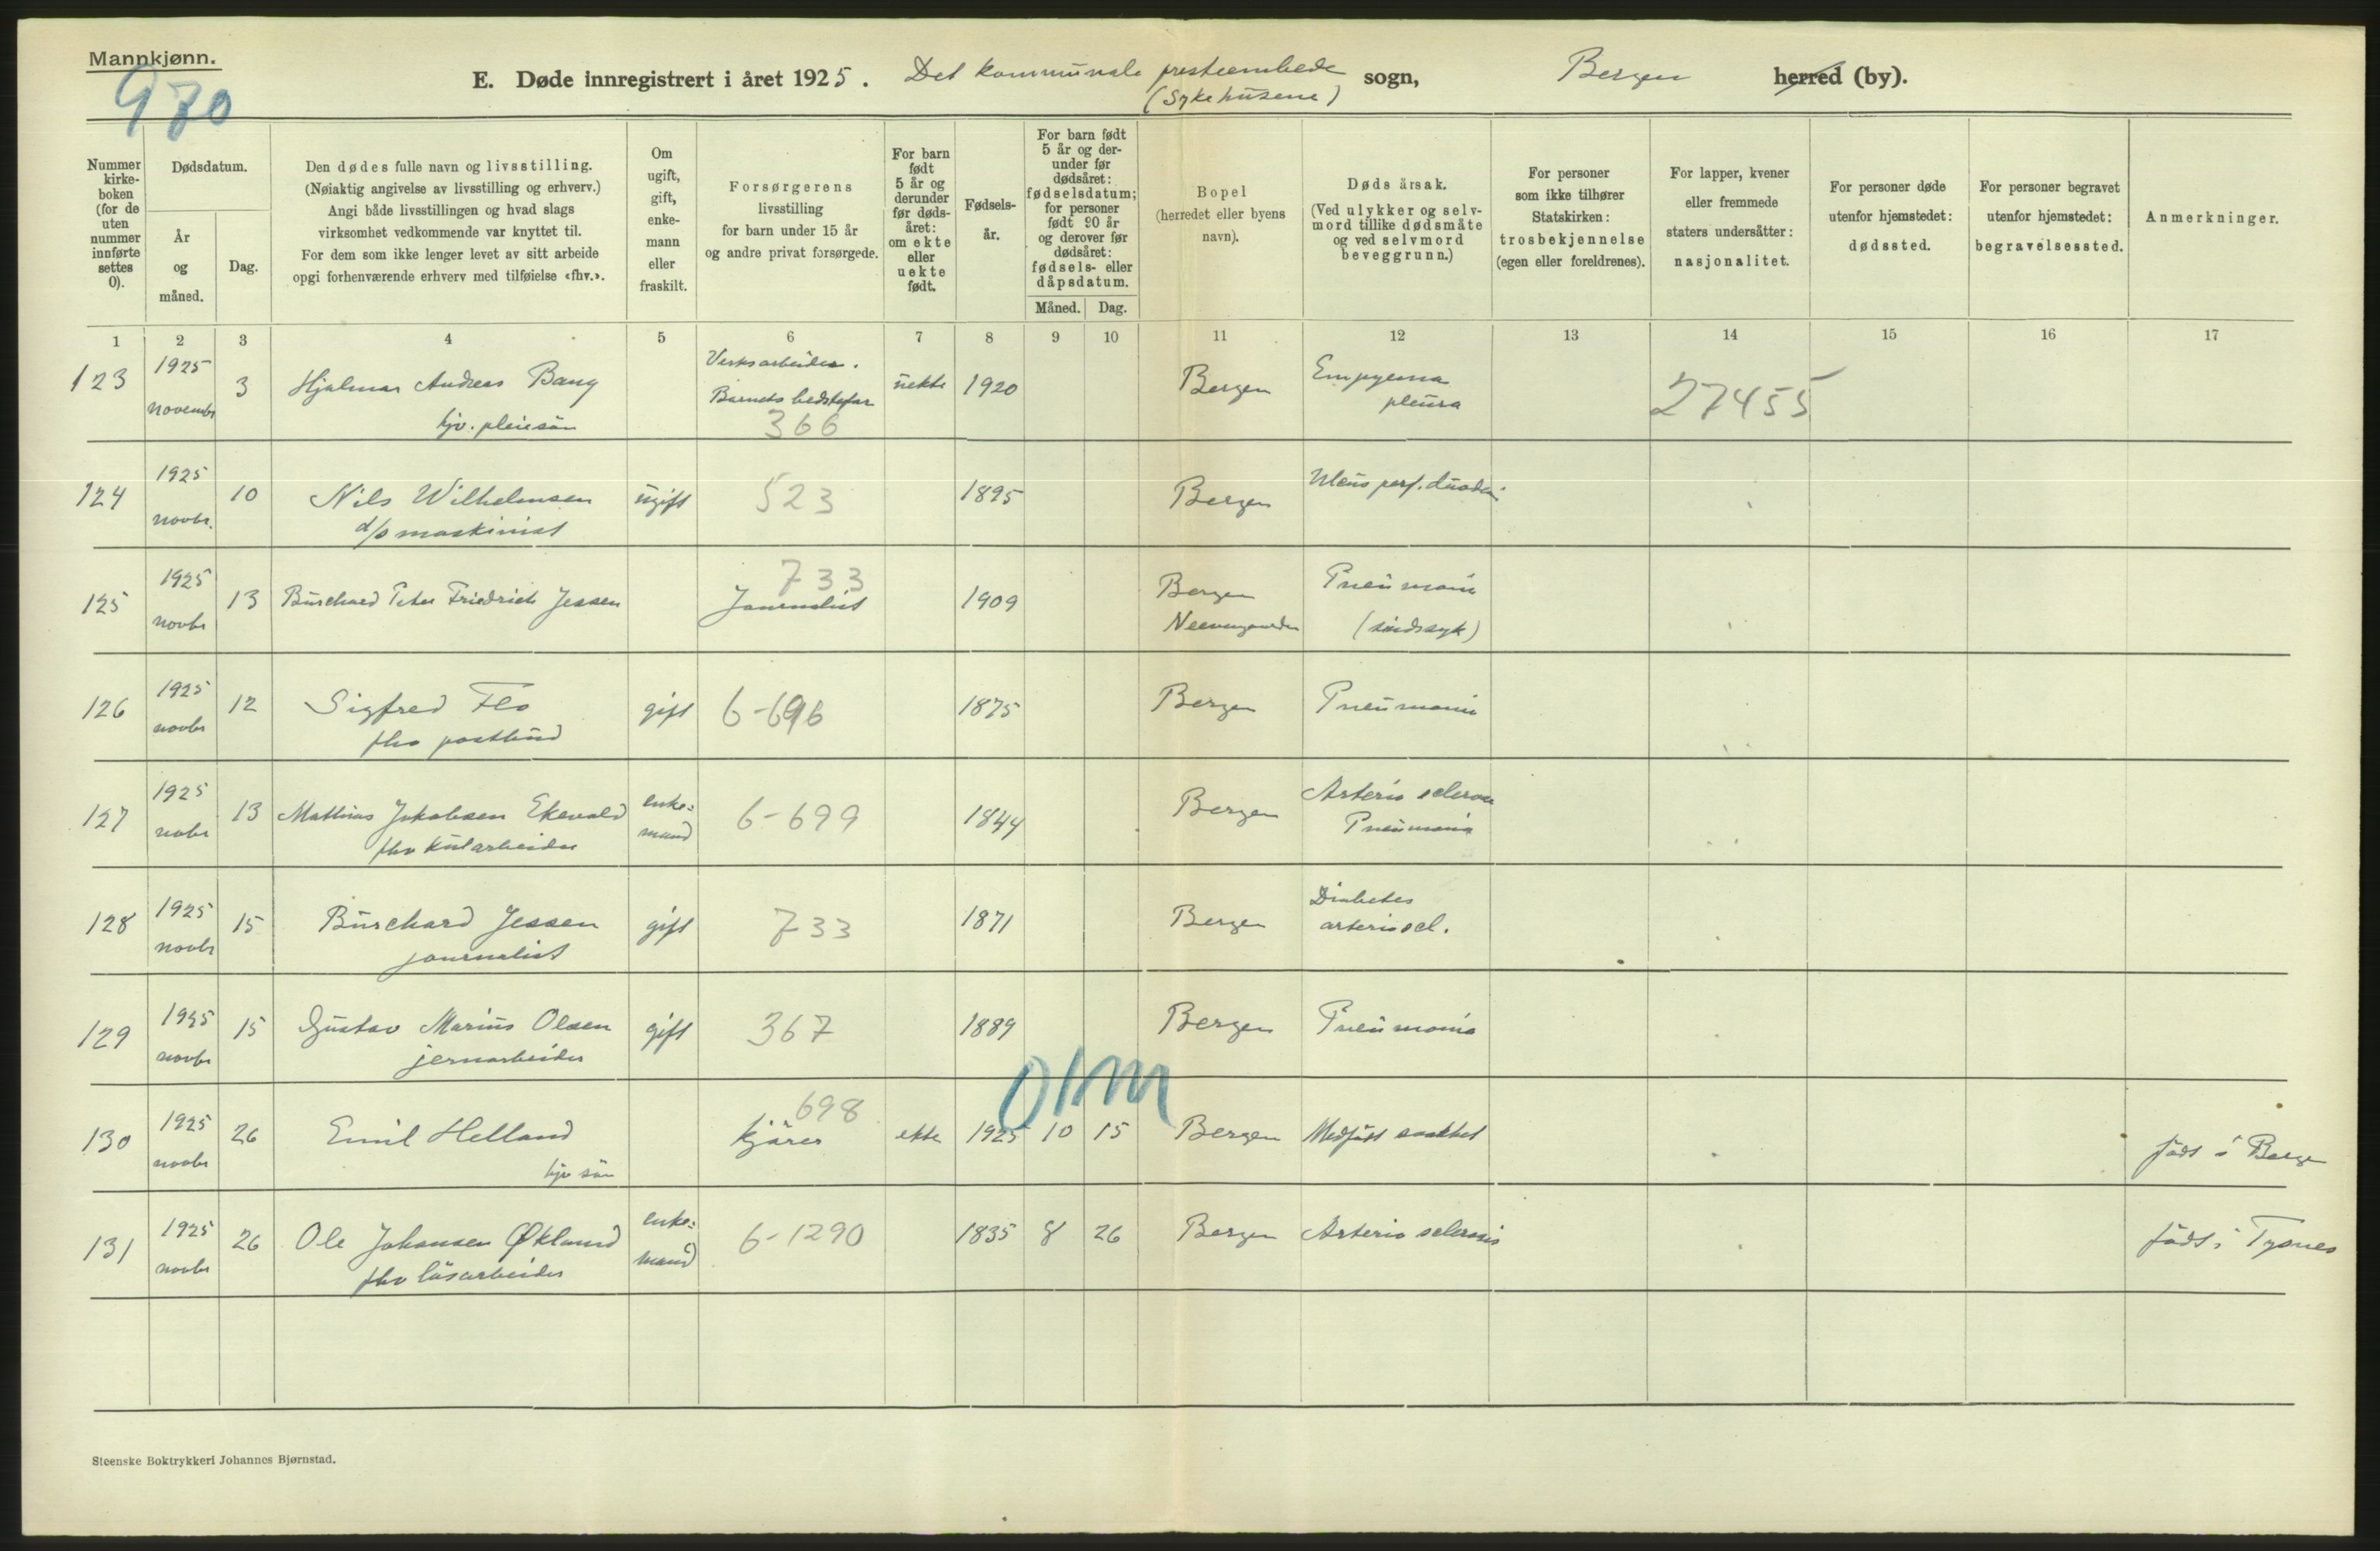 Mannkjønn.
970
E. Døde innregistrert i året 1925. Det kommunale presteembede sogn, Bergen herred (by).
(Sykehusene)
Nummer kirke-boken (for de uten nummer innførte settes 0).
Dødsdatum.
År og måned.
Dag.
Den dødes fulle navn og livsstilling.
(Nøiaktig angivelse av livsstilling og erhverv.)
Angi både livsstillingen og hvad slags
virksomhet vedkommende var knyttet til.
For dem som ikke lenger levet av sitt arbeide
opgi forhenværende erhverv med tilføielse «fhv.».
Om ugift, gift, enke-mann eller fraskilt.
Forsørgerens
livsstilling
for barn under 15 år
og andre privat forsørgede.
For barn født 5 år og derunder før døds-året: om ekte eller uekte født.
Fødsels-år.
For barn født 5 år og der-under før dødsåret: fødselsdatum; for personer født 90 år og derover før dødsåret: fødsels- eller dåpsdatum.
Måned. Dag.
Bopel
(herredet eller byens
navn).
Døds årsak.
(Ved ulykker og selv-
mord tillike dødsmåte
og ved selvmord
beveggrunn.)
For personer
som ikke tilhører
Statskirken:
trosbekjennelse
(egen eller foreldrenes).
For lapper, kvener
eller fremmede
staters undersåtter:
nasjonalitet.
For personer døde
utenfor hjemstedet:
dødssted.
For personer begravet
utenfor hjemstedet:
begravelsessted.
Anmerkninger.
1 2 3 4 5 6 7 8 9 10 11 12 13 14 15 16 17
123 1925 november 3 Hjalmar Andreas Bang
hjv. pleiesön
Verksarbeider.
Barnets bedstefar
366
uekte 1920 Bergen Empyema
pleura
27455
124 1925 novbr. 10 Nils Wilhelmsen
d/s maskinist
ugift 523 1895 Bergen Ulcus perf. duodeni
125 1925 novbr 13 Burchard Peter Friedrich Jessen
733
Journalist
1909 Bergen
Neevengaarden
Pneumoni
(sindssyk)
126 1925 novbr 12 Sigfred Flo
fhv postbud
gift 6-696 1875 Bergen Pneumoni
127 1925 novbr 13 Mathias Jakobsen Ekevald
fhv kularbeider
enke-
mand
6-699 1844 Bergen Arterio sclerose
Pneumonia
128 1925 novbr 15 Burchard Jessen
journalist
gift 733 1871 Bergen Diabetes
arterioscl.
129 1925 novbr 15 Gustav Marius Olsen
jernarbeider
gift 367 1889 Bergen Pneumonia
01m
130 1925 novbr 26 Emil Helland
hjv sön
698
kjörer
ekte 1925 10 15 Bergen Medfödt svakhet
född i Bergen
131 1925 novbr 26 Ole Johansen Økland
fhv lösarbeider
enke-
mand
6-1290 1835 8 26 Bergen Arterio sclerosis
född i Tysnes
Steenske Boktrykkeri Johannes Bjørnstad.